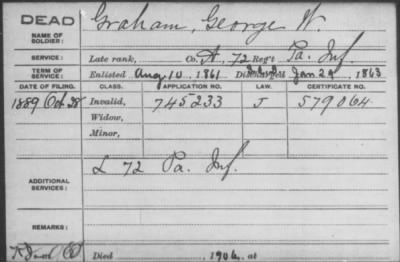 DEAD
Graham, George W.
NAME OF SOLDIER:
SERVICE: Late rank, Co. A, 72 Reg't Pa. Inf.
TERM OF SERVICE: Enlisted Aug. 10, 1861 Discharged Jan 29, 1863
DATE OF FILING. CLASS. APPLICATION NO. LAW. CERTIFICATE NO.
1889 Oct 28 Invalid, 745233 J 579064
Widow,
Minor,
ADDITIONAL SERVICES: L 72 Pa. Inf.
REMARKS:
Died 1906, at